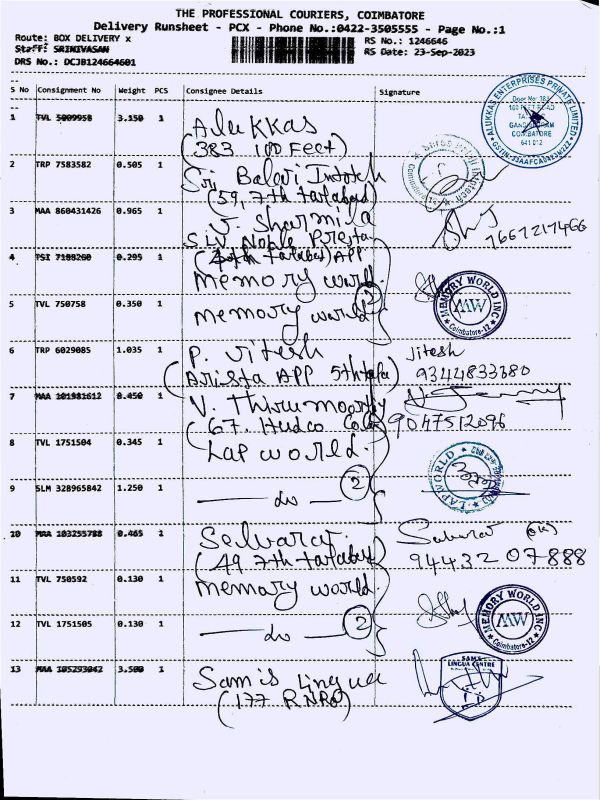 THE PROFESSIONAL COURIERS, COIMBATORE
Delivery Runsheet - PCX - Phone No.:0422-3505555 - Page No.:1
Route: BOX DELIVERY x
RS No.: 1246646
Staff: SRINIVASAN
RS Date: 23-Sep-2023
DRS No.: DCJB124664601
S No Consignment No Weight PCS Consignee Details Signature
1 TVL 5009958 3.150 1 Alukkas
(383 100 Feet)
ALUKKAS ENTERPRISES PRIVATE LIMITED
100 FEET ROAD
COIMBATORE
641 012
2 TRP 7583582 0.505 1 Sri Balaji Infotech
(59, 7th tatabad)
3 MAA 860431426 0.965 1 J. Sharmila
S.LV Noble Presta
(4th tatabad) APP
4 TSI 7188260 0.295 1 memory world.
MEMORY WORLD INC
MW
Coimbatore-12
5 TVL 750758 0.350 1 memory world 2
6 TRP 6029085 1.035 1 P. Jitesh
(Arista APP 5th tata)
Jitesh
9344833380
7 MAA 101981612 0.450 1 V. Thirumoorthy
(67. Hudco Colo)
9047512096
8 TVL 1751504 0.345 1 Lap world.
LAP WORLD
9 SLM 328965842 1.250 1 — do — 2
10 MAA 103255788 0.465 1 Selvaraj.
(49 7th tatabad)
94432 07888
11 TVL 750592 0.130 1 memory world.
MEMORY WORLD INC
MW
Coimbatore-12
12 TVL 1751505 0.130 1 — do — 2
13 MAA 105293042 3.500 1 Sam's Lingua
(177 R.NRD)
SAM'S
LINGUA CENTRE